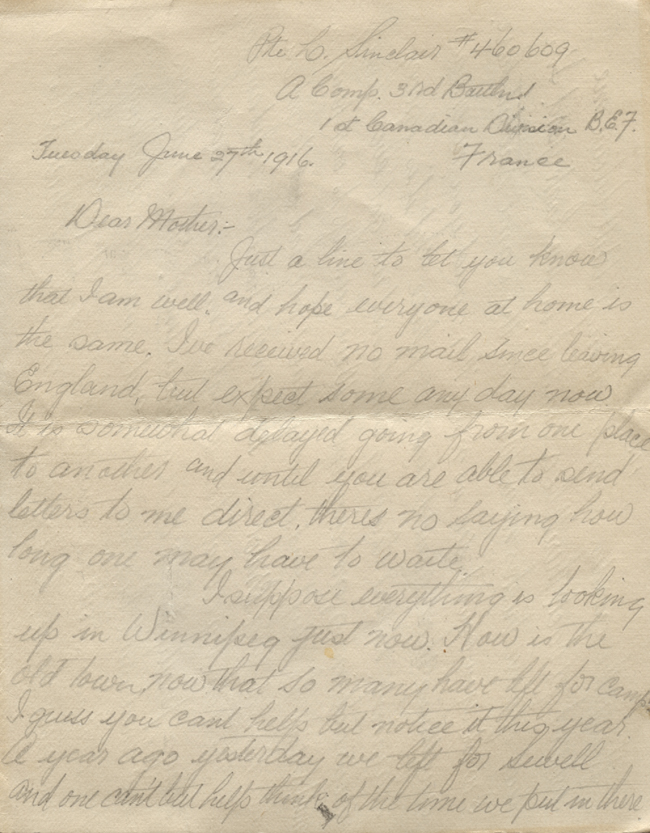 Pte L. Sinclair #460609
A Comp. 3rd Battln
1st Canadian Division B.E.F.
Tuesday June 27th 1916. France
Dear Mother:-
Just a line to let you know
that I am well, and hope everyone at home is
the same. I've received no mail since leaving
England, but expect some any day now
It is somewhat delayed going from one place
to another and until you are able to send
letters to me direct, theres no saying how
long one may have to waite.
I suppose everything is looking
up in Winnipeg just now. How is the
old town, now that so many have left for camp
I guess you cant help but notice it this year.
A year ago yesterday we left for Sewell
and one can't but help think of the time we put in there